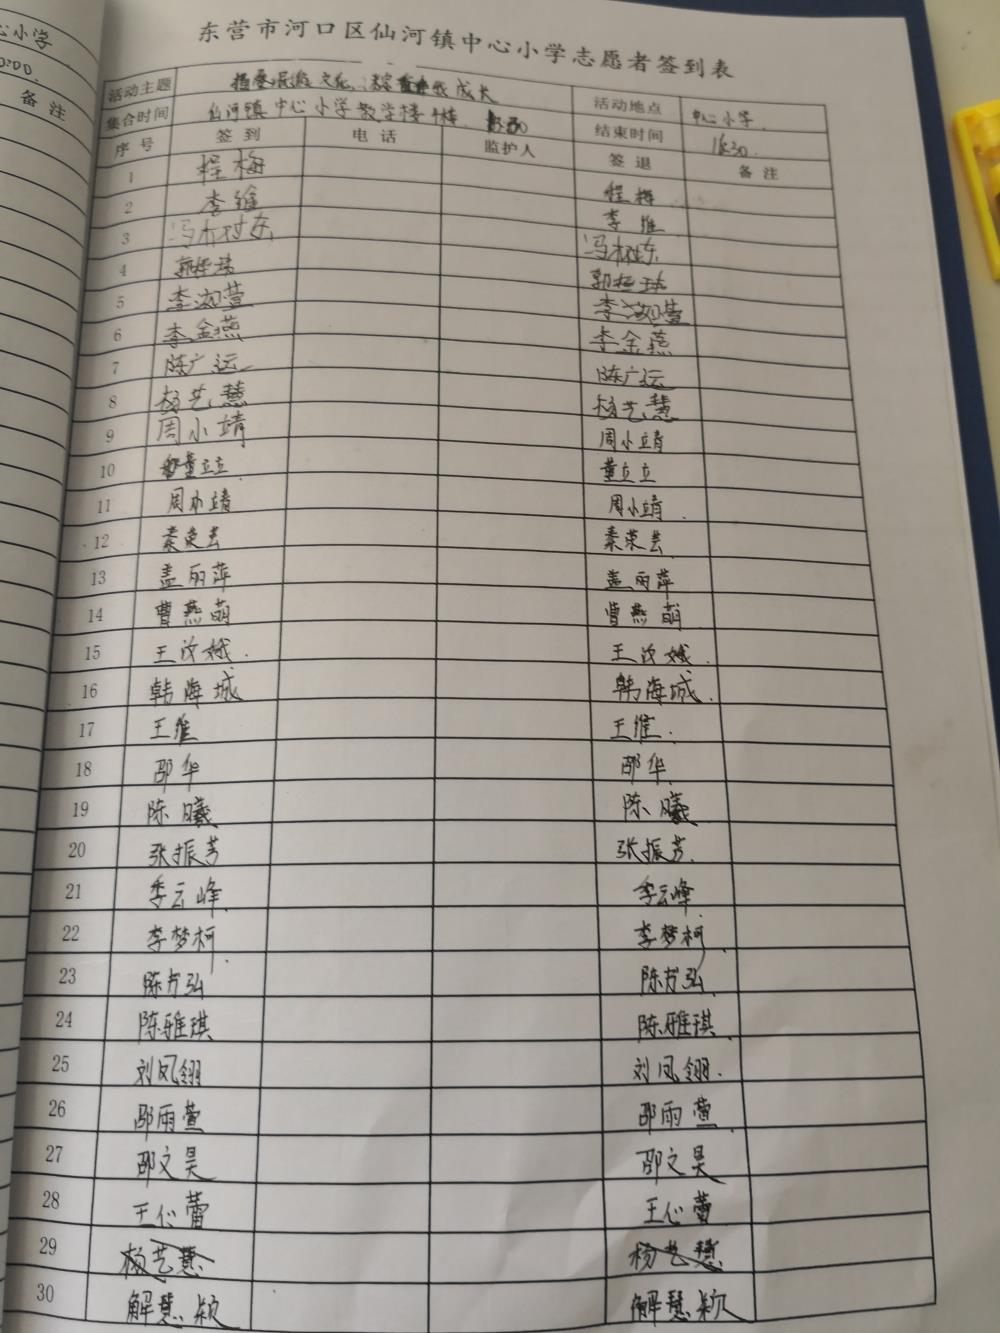 心小学
0:00.
备 注
东营市河口区仙河镇中心小学志愿者签到表
活动主题 文化, 成长 活动地点 中心小学.
集合时间 仙河镇中心小学教学楼 结束时间
序 号 签 到 电 话 监护人 签 退 备 注
1 程梅 程梅
2 李维 李维
3 冯树东 冯树东
4 郭 郭
5 李淑萱 李淑萱
6 李金燕 李金燕
7 陈广运 陈广运
8 杨艺慧 杨艺慧
9 周小靖 周小靖
10 董立立 董立立
11 周小靖 周小靖.
12 秦荣芸 秦荣芸
13 盖丽萍 盖丽萍
14 曹燕萌 曹燕萌
15 王汝娥. 王汝娥.
16 韩海城 韩海城.
17 王维 王维.
18 邵华 邵华
19 陈曦 陈曦
20 张振芳 张振芳.
21 季云峰 季云峰
22 李梦柯 李梦柯
23 陈书弘 陈书弘
24 陈雅琪 陈雅琪
25 刘凤翎 刘凤翎.
26 邵雨萱 邵雨萱
27 邵文昊 邵文昊
28 王心蕾 王心蕾
29 杨艺慧 杨艺慧
30 解慧颖 解慧颖